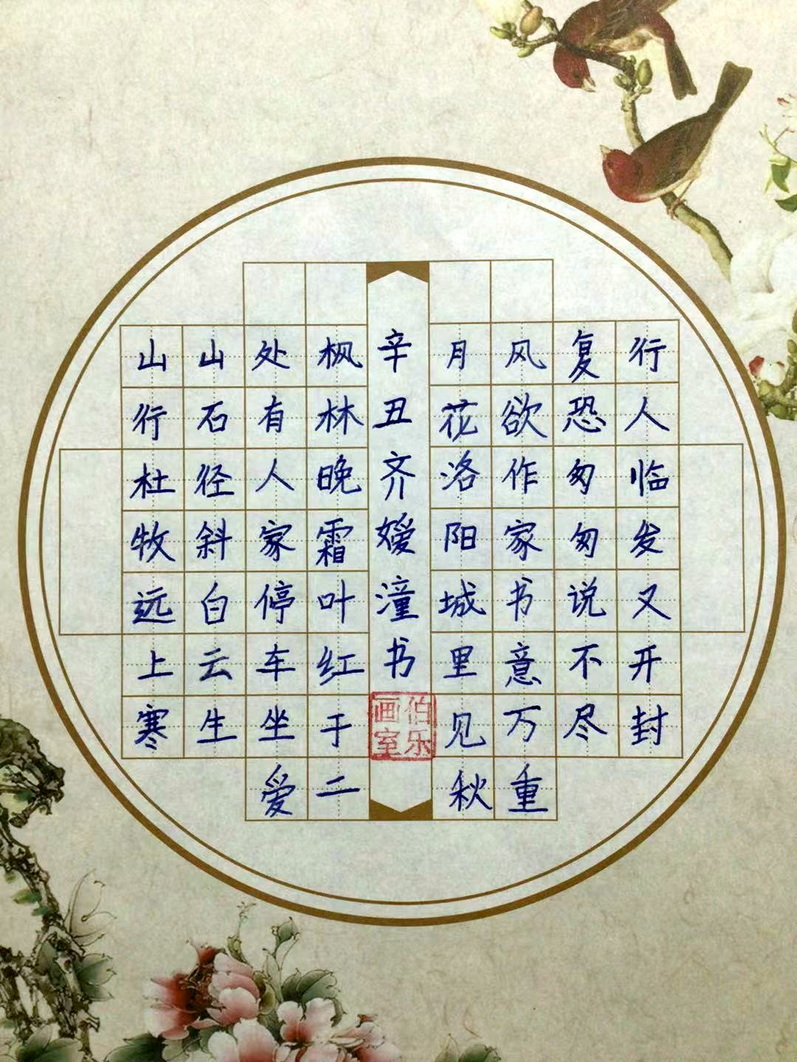 山行杜牧远上寒
山石径斜白云生
处有人家停车坐爱
枫林晚霜叶红于二
月花洛阳城里见秋
风欲作家书意万重
复恐匆匆说不尽
行人临发又开封
辛丑齐嫒潼书
伯乐画室